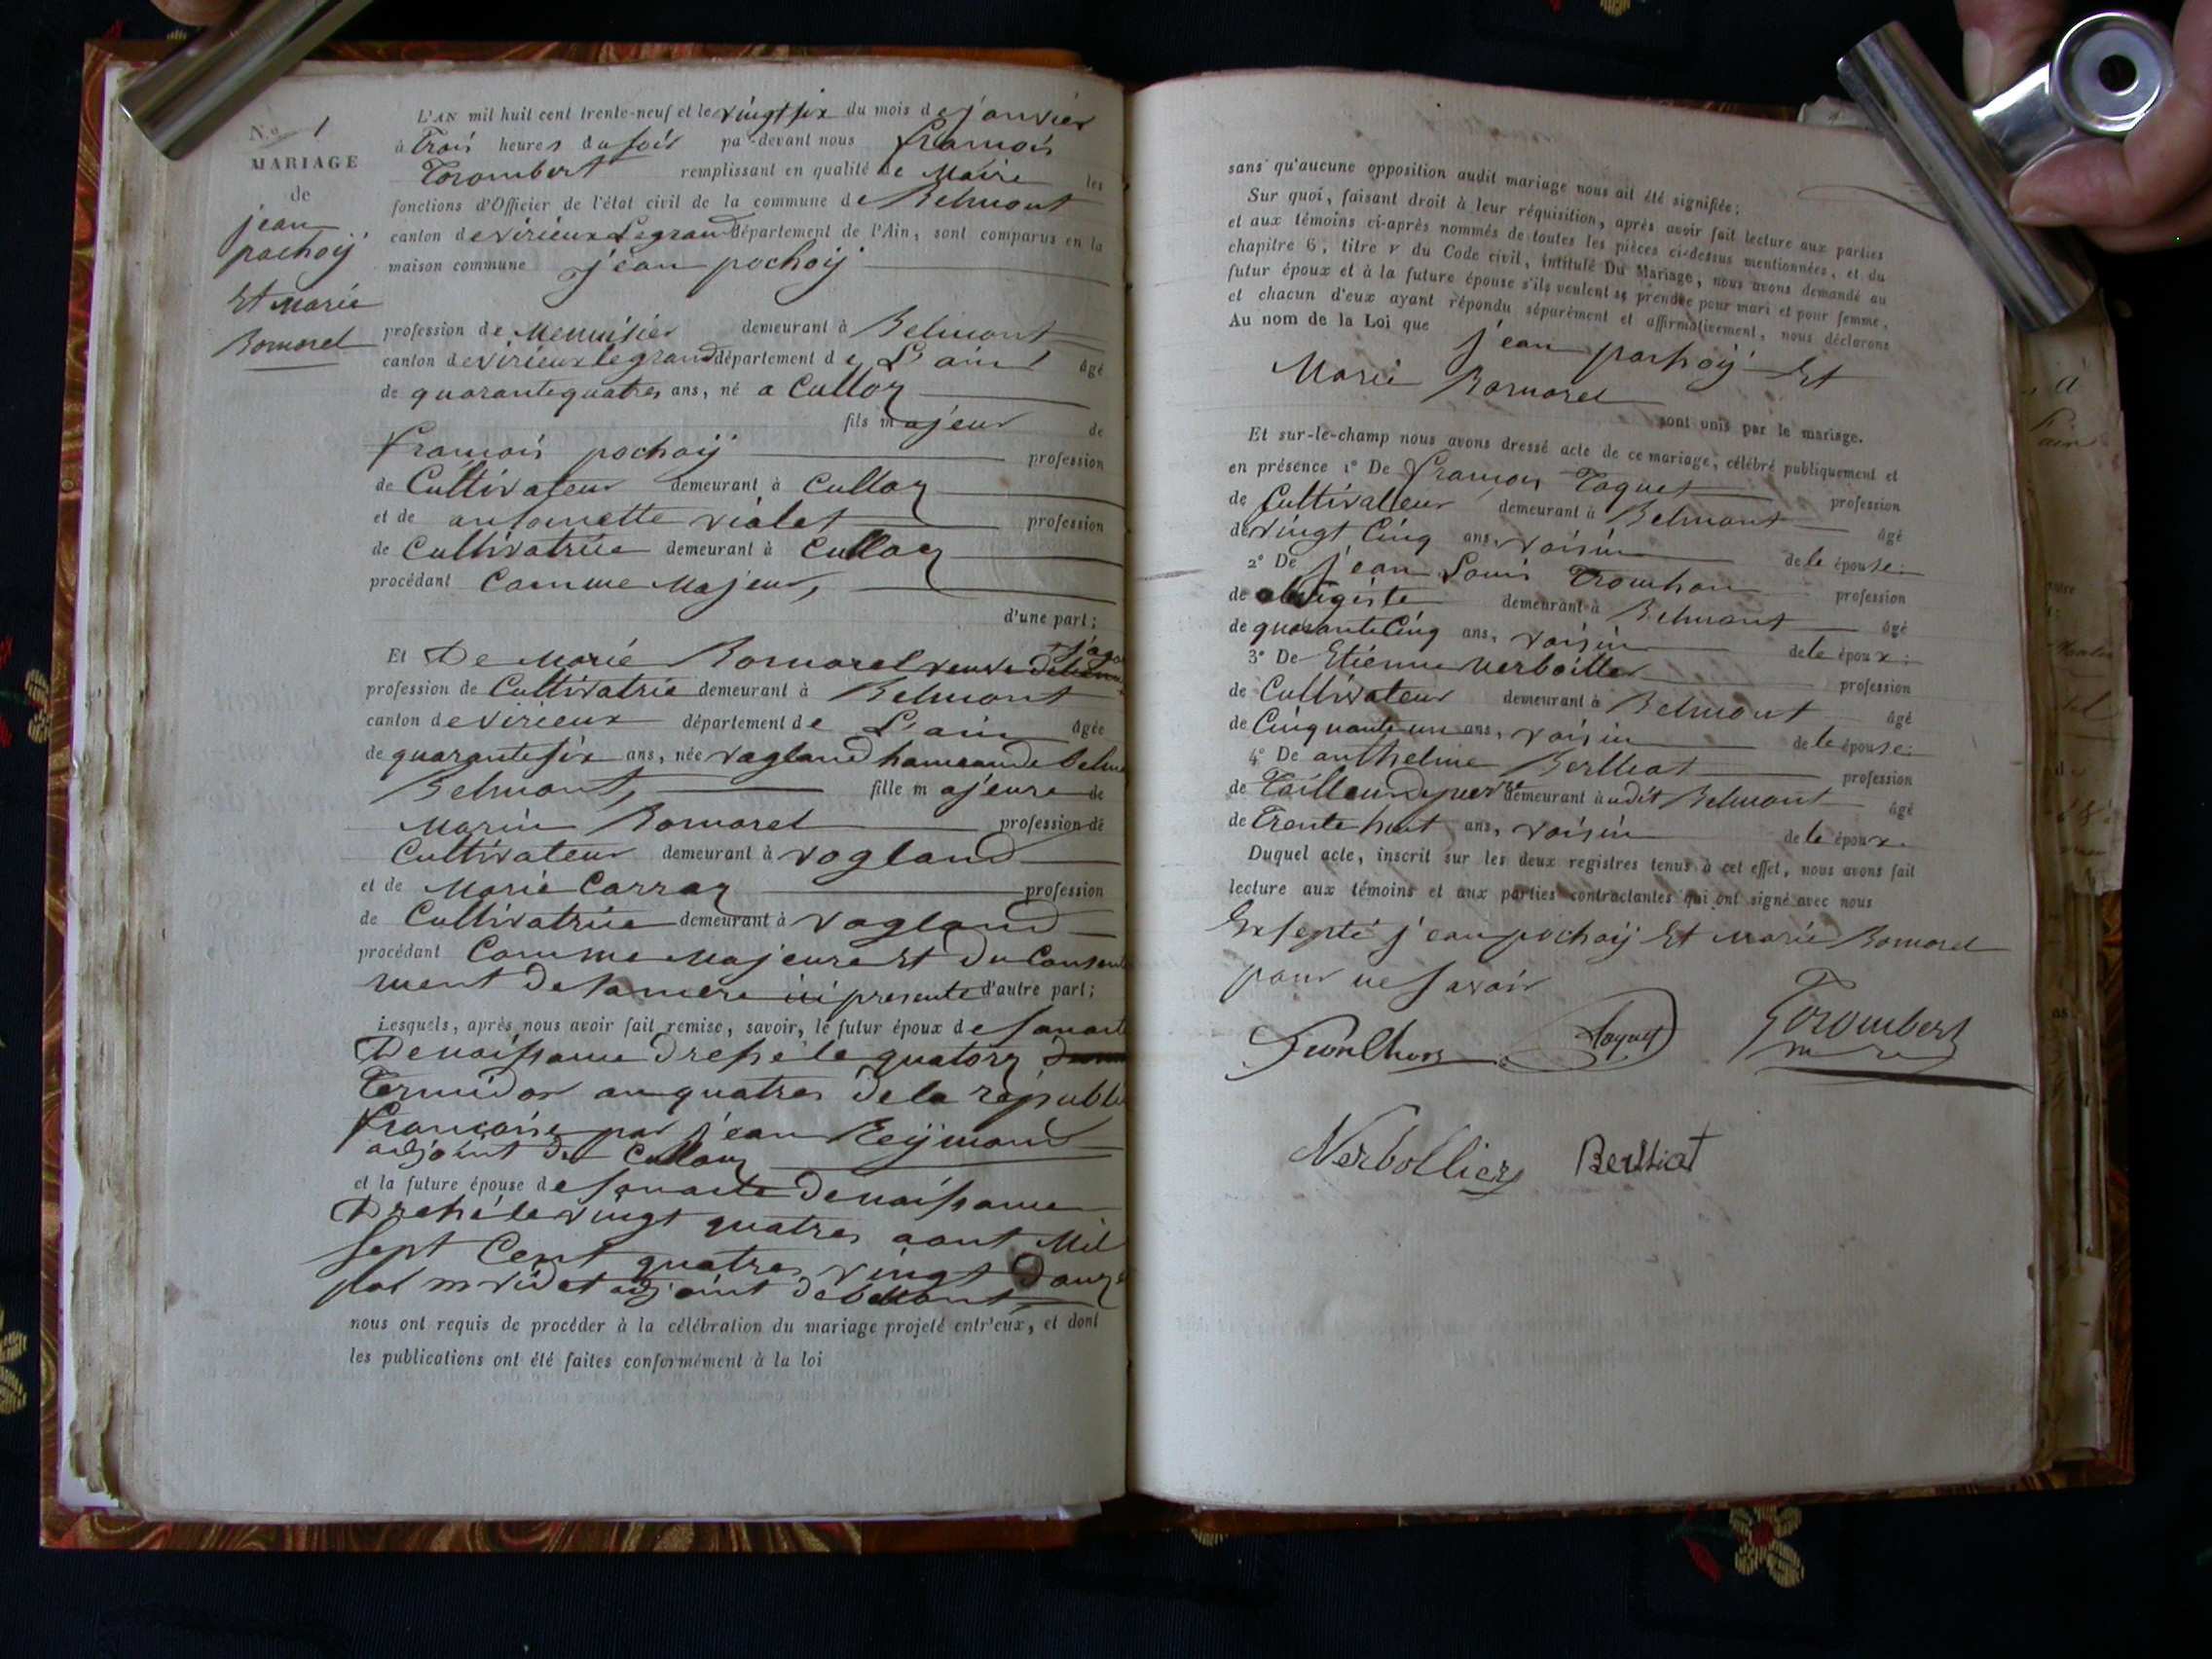 N.o 1
MARIAGE
de
jean
pochoij
Et Marie
Bornarel
L'AN mil huit cent trente-neuf et le vingt six du mois de janvier
à Trois heures du soir pa-devant nous francois
Trombert remplissant en qualité de Maire les
fonctions d'Officier de l'état civil de la commune de Belmont
canton de virieux Le grand département de l'Ain, sont comparus en la
maison commune jean pochoij
profession de Menuisier demeurant à Belmont
canton de virieux le grand département de L'ain âgé
de quarante quatres ans, né a Culloz
fils majeur de
francois pochoij profession
de Cultivateur demeurant à Culloz
et de antoinette vialet profession
de Cultivatrice demeurant à Culloz
procédant Comme Majeur,
d'une part;
Et De Marie Bornarel veuve
profession de Cultivatrie demeurant à Belmont
canton de virieux département de L'ain âgée
de quarante six ans, née vogland hameau de
Belmont, fille majeure de
Marin Bornarel profession de
Cultivateur demeurant à vogland
et de Marie Carraz profession
de Cultivatrice demeurant à vogland
procédant Comme Majeure Et du Consente
ment de sa mere ici presente d'autre part;
Lesquels, après nous avoir fait remise, savoir, le futur époux de son acte
De naissance Dressé le quatorz
Termidor an quatres de la republi
francoise par jean Reijmond
adjoint de Culloz
et la future épouse de son acte De naissance
Dressé le vingt quatres aout Mil
sept Cent quatres vingt Douze
par m videt adjoint de belmont,
nous ont requis de procéder à la célébration du mariage projeté entr'eux, et dont
les publications ont été faites conformément à la loi
sans qu'aucune opposition audit mariage nous ait été signifiée;
Sur quoi, faisant droit à leur réquisition, après avoir fait lecture aux parties
et aux témoins ci-après nommés de toutes les pièces ci-dessus mentionnées, et du
chapitre 6, titre v du Code civil, intitulé Du Mariage, nous avons demandé au
futur époux et à la future épouse s'ils veulent se prendre pour mari et pour femme,
et chacun d'eux ayant répondu séparément et affirmativement, nous déclarons
Au nom de la Loi que jean pochoij Et
Marie Bornarel
sont unis par le mariage.
Et sur-le-champ nous avons dressé acte de ce mariage, célébré publiquement et
en présence 1° De francois Taquet profession
de Cultivatteur demeurant à Belmont âgé
de vingt Cinq ans, voisin de le épouse:
2° De jean Louis profession
de demeurant à Belmont âgé
de quarante Cinq ans, voisin de le époux:
3° De Etienne verboillier profession
de Cultivateur demeurant à Belmont âgé
de Cinquante un ans, voisin de le épouse:
4° De anthelme Berlliat profession
de Tailleur de pierre demeurant à udit Belmont âgé
de Trente huit ans, voisin de le époux.
Duquel acte, inscrit sur les deux registres tenus à cet effet, nous avons fait
lecture aux témoins et aux parties contractantes qui ont signé avec nous
Exsepté jean pochoij Et Marie Bornarel
pour ne savoir
Taquet
Trombert
Verbollier Berlliat